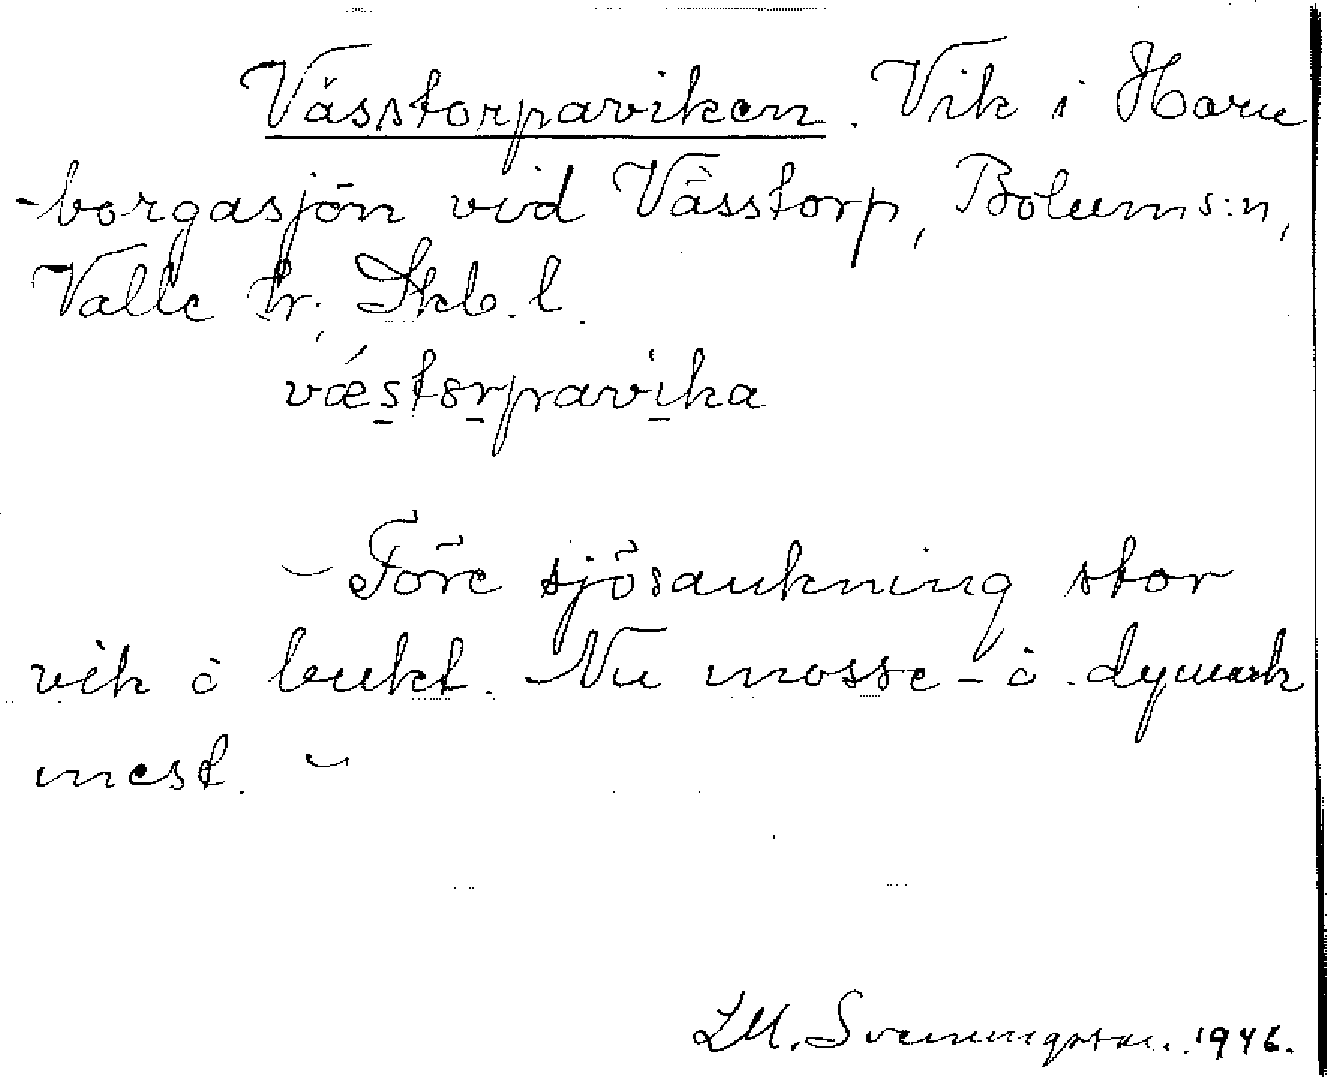 Vässtorpaviken. Vik i Horn
-borgasjön vid Vässtorp, Bolums:n,
Valle hr, Skb. l.
vǽstorpavika
– Före sjösänkning stor
vik å bukt. Nu mosse- å dymark
mest. –
LM. Svenungsson. 1946.